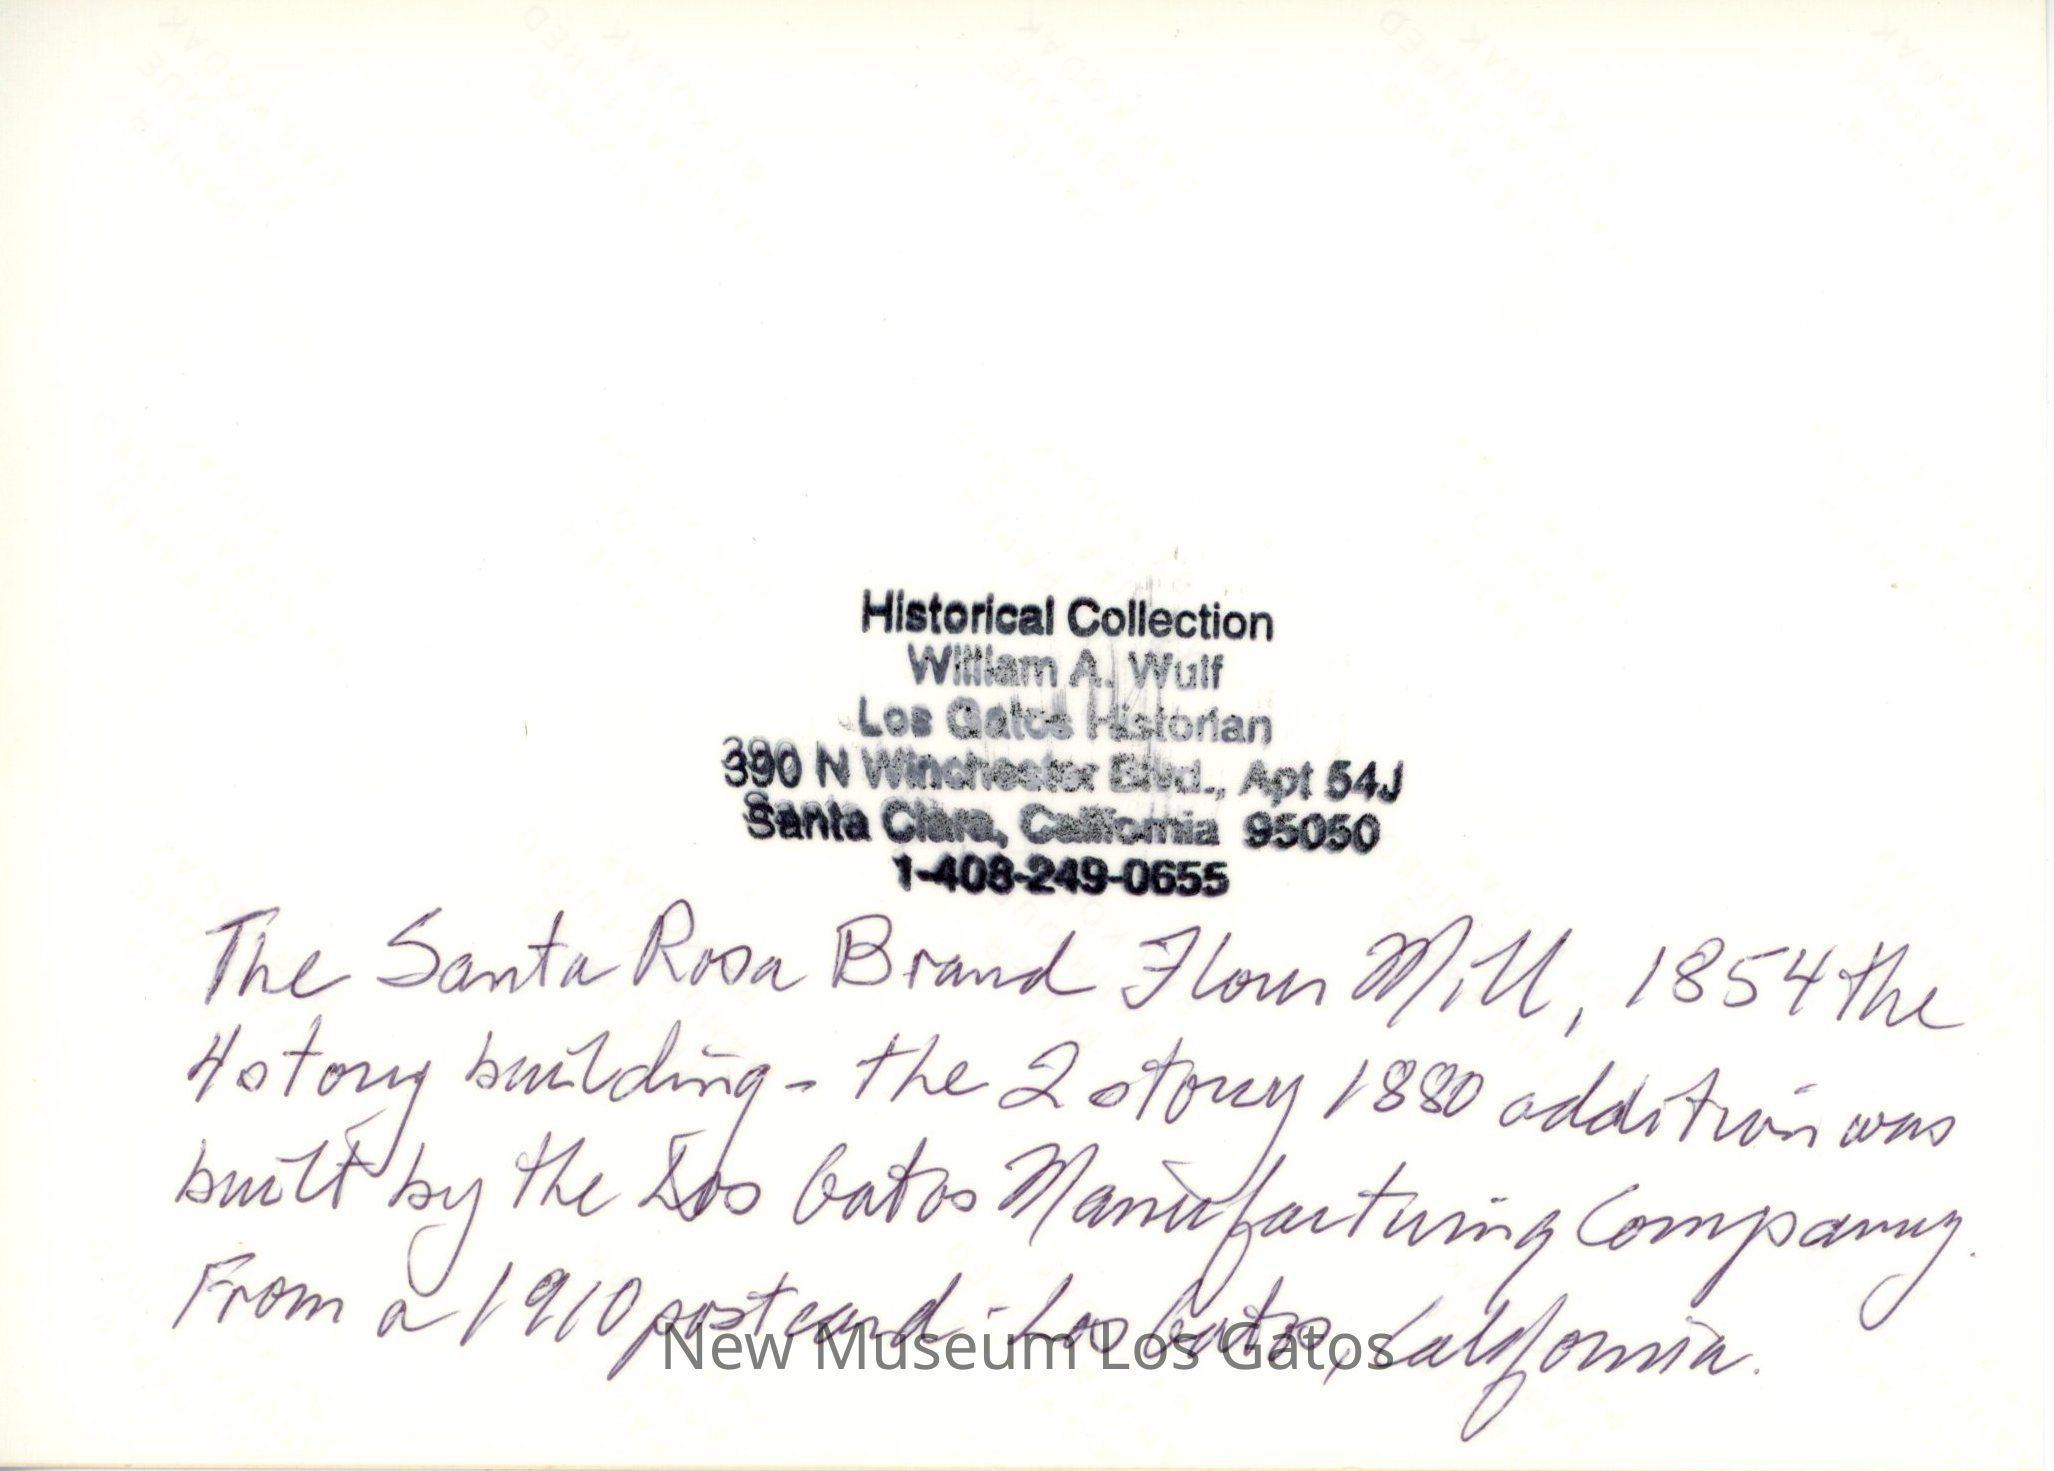 Historical Collection
William A. Wulf
Los Gatos Historian
390 N Winchester Blvd., Apt 54J
Santa Clara, California 95050
1-408-249-0655
The Santa Rosa Brand Flour Mill, 1854 the
4 story building - the 2 story 1880 addition was
built by the Los Gatos Manufacturing Company.
From a 1910 postcard - Los Gatos, California.
New Museum Los Gatos